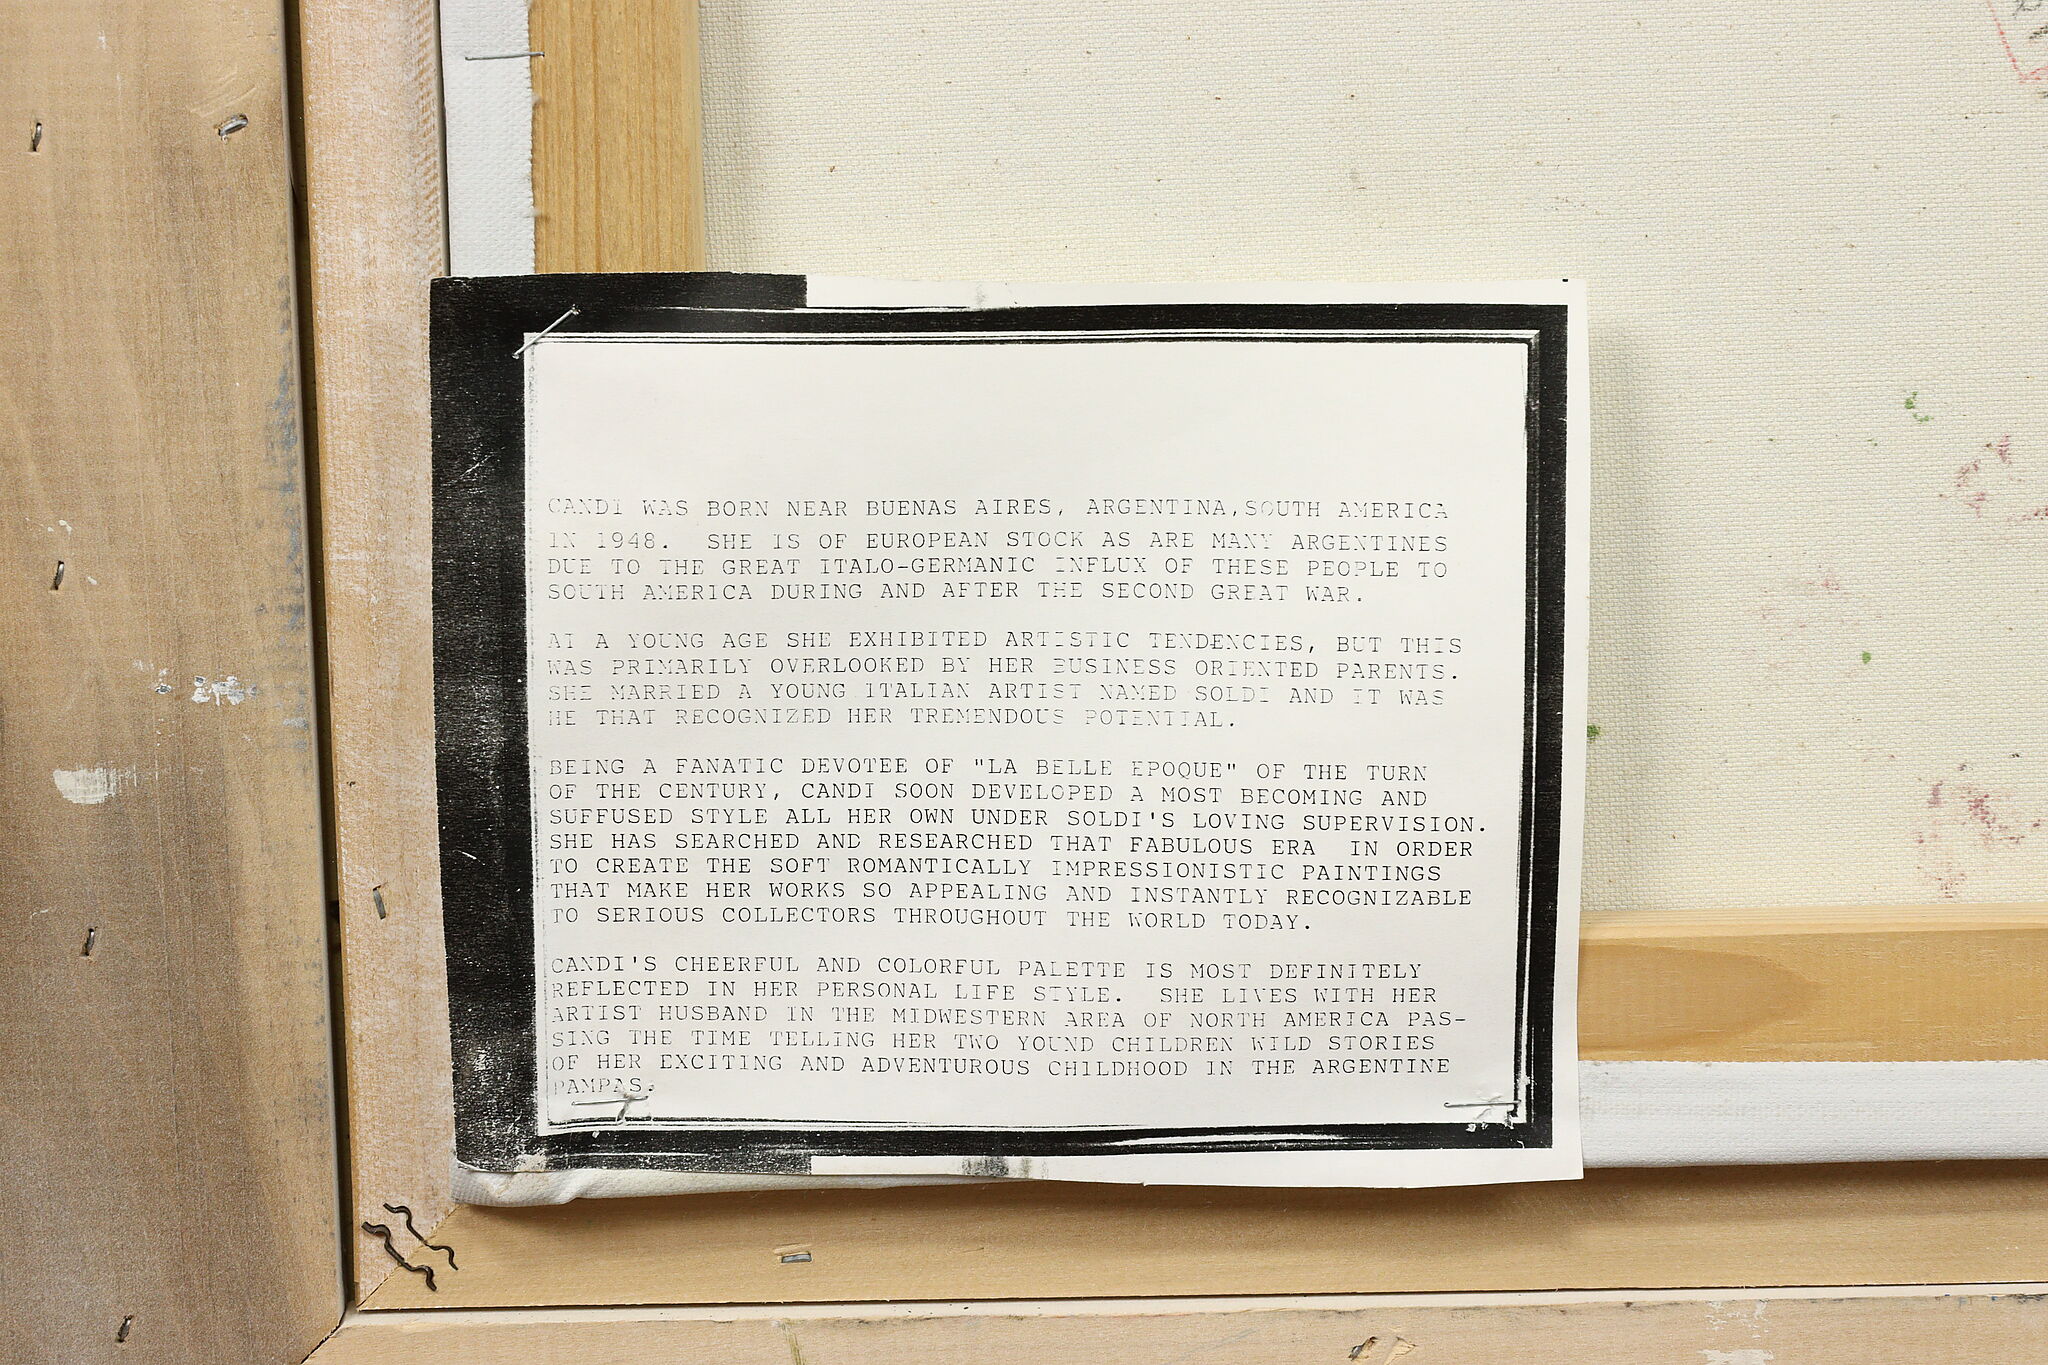 CANDI WAS BORN NEAR BUENAS AIRES, ARGENTINA,SOUTH AMERICA
IN 1948.  SHE IS OF EUROPEAN STOCK AS ARE MANY ARGENTINES
DUE TO THE GREAT ITALO-GERMANIC INFLUX OF THESE PEOPLE TO
SOUTH AMERICA DURING AND AFTER THE SECOND GREAT WAR.
AT A YOUNG AGE SHE EXHIBITED ARTISTIC TENDENCIES, BUT THIS
WAS PRIMARILY OVERLOOKED BY HER BUSINESS ORIENTED PARENTS.
SHE MARRIED A YOUNG ITALIAN ARTIST NAMED SOLDI AND IT WAS
HE THAT RECOGNIZED HER TREMENDOUS POTENTIAL.
BEING A FANATIC DEVOTEE OF "LA BELLE EPOQUE" OF THE TURN
OF THE CENTURY, CANDI SOON DEVELOPED A MOST BECOMING AND
SUFFUSED STYLE ALL HER OWN UNDER SOLDI'S LOVING SUPERVISION.
SHE HAS SEARCHED AND RESEARCHED THAT FABULOUS ERA  IN ORDER
TO CREATE THE SOFT ROMANTICALLY IMPRESSIONISTIC PAINTINGS
THAT MAKE HER WORKS SO APPEALING AND INSTANTLY RECOGNIZABLE
TO SERIOUS COLLECTORS THROUGHOUT THE WORLD TODAY.
CANDI'S CHEERFUL AND COLORFUL PALETTE IS MOST DEFINITELY
REFLECTED IN HER PERSONAL LIFE STYLE.  SHE LIVES WITH HER
ARTIST HUSBAND IN THE MIDWESTERN AREA OF NORTH AMERICA PAS-
SING THE TIME TELLING HER TWO YOUND CHILDREN WILD STORIES
OF HER EXCITING AND ADVENTUROUS CHILDHOOD IN THE ARGENTINE
PAMPAS.